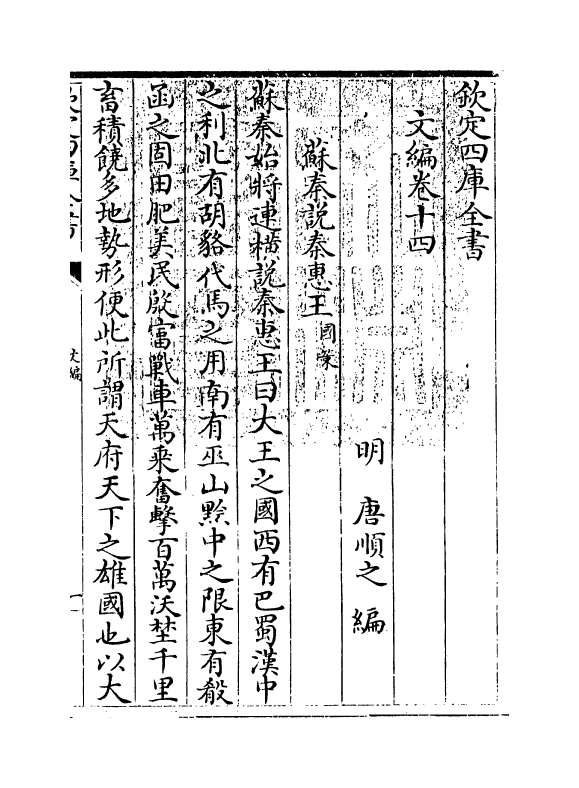 欽定四庫全書
文編卷十四
明　唐順之　編
蘇秦説秦惠王國策
蘇秦始將連横説秦惠王曰大王之國西有巴蜀漢中
之利北有胡貉代馬之用南有巫山黔中之限東有殽
函之固田肥美民殷富戰車萬乘奮擊百萬沃埜千里
畜積饒多地勢形便此所謂天府天下之雄國也以大
欽定四庫全書
文編
一